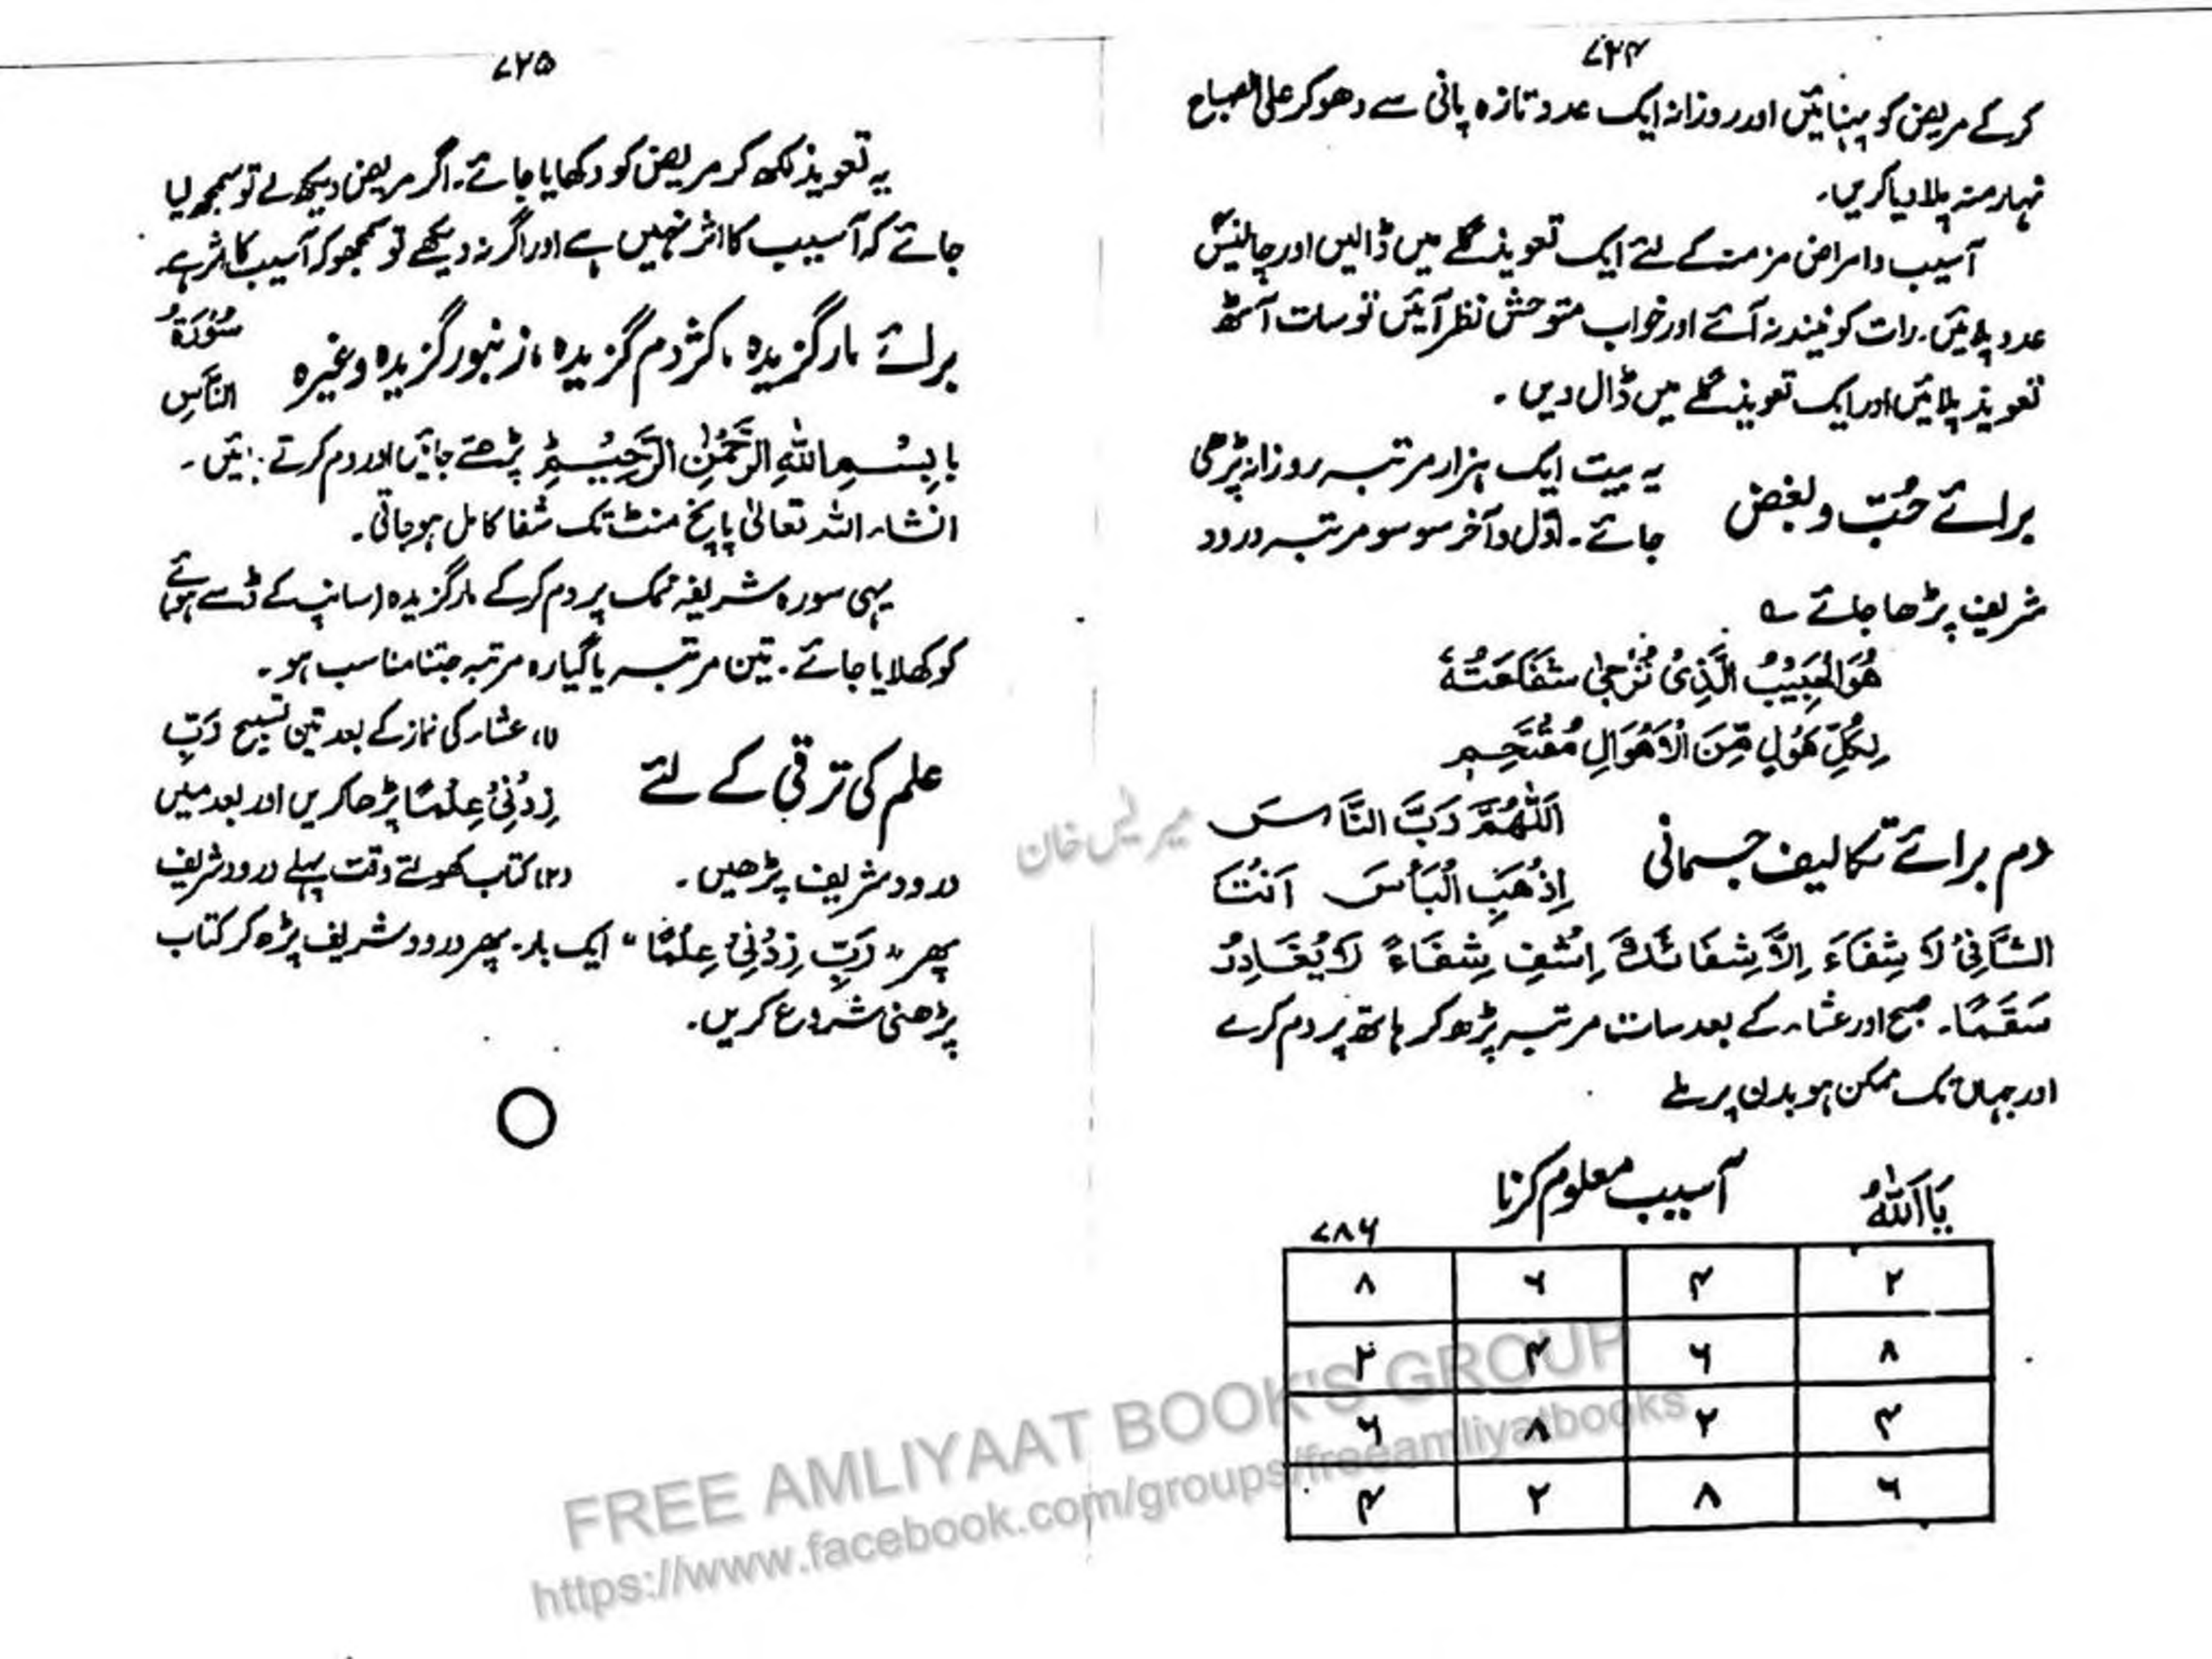 ۷۲۴
کرکے مریض کو پہنائیں اور روزانہ ایک عدد تازہ پانی سے دھو کر علی الصباح
نہار منہ پلا دیا کریں۔
آسیب و امراض مزمنہ کے لئے ایک تعویذ گلے میں ڈالیں اور چالیس
عدد پلائیں۔ رات کو نیند نہ آئے اور خواب متوحش نظر آئیں تو سات آٹھ
تعویذ پلائیں اور ایک تعویذ گلے میں ڈال دیں۔
برائے حُبّ و بغض
یہ بیت ایک ہزار مرتبہ روزانہ پڑھی
جائے۔ اوّل و آخر سو سو مرتبہ درود
شریف پڑھا جائے ؎
هُوَ الْحَبِيْبُ الَّذِىْ تُرْجٰى شَفَاعَتُهٗ
لِكُلِّ هَوْلٍ مِّنَ الْاَهْوَالِ مُقْتَحِمٍ
دم برائے تکالیف جسمانی
اَللّٰهُمَّ رَبَّ النَّاسِ
اِذْهَبِ الْبَأْسَ اَنْتَ
الشَّافِىْ لَا شِفَاءَ اِلَّا شِفَائُكَ اِشْفِ شِفَاءً لَا يُغَادِرُ
سَقَمًا۔ صبح اور عشاء کے بعد سات مرتبہ پڑھ کر ہاتھ پر دم کرے
اور جہاں تک ممکن ہو بدن پر ملے
يَا اَللّٰهُ آسیب معلوم کرنا ۷۸۶
۲ ۴ ۶ ۸
۸ ۶ ۴ ۲
۴ ۲ ۸ ۶
۶ ۸ ۲ ۴
۷۲۵
یہ تعویذ لکھ کر مریض کو دکھایا جائے۔ اگر مریض دیکھ لے تو سمجھ لیا
جائے کہ آسیب کا اثر نہیں ہے اور اگر نہ دیکھے تو سمجھو کہ آسیب کا اثر ہے۔
برائے مار گزیدہ، کژدم گزیدہ، زنبور گزیدہ وغیرہ
سُوْرَةُ
النَّاسِ
با بِسْمِ اللّٰهِ الرَّحْمٰنِ الرَّحِيْمِ پڑھتے جائیں اور دم کرتے
انشاء اللہ تعالیٰ پانچ منٹ تک شفا کامل ہو جاتی۔
یہی سورہ شریفہ نمک پر دم کرکے مار گزیدہ (سانپ کے ڈسے ہوئے)
کو کھلایا جائے۔ تین مرتبہ یا گیارہ مرتبہ جتنا مناسب ہو۔
علم کی ترقی کے لئے
(۱) عشاء کی نماز کے بعد تین تسبیح رَبِّ
زِدْنِىْ عِلْمًا پڑھا کریں اور بعد میں
درود شریف پڑھیں۔ (۲) کتاب کھولتے وقت پہلے درود شریف
پھر "رَبِّ زِدْنِىْ عِلْمًا" ایک بار۔ پھر درود شریف پڑھ کر کتاب
پڑھنی شروع کریں۔
خان
FREE AMLIYAAT BOOK'S GROUP
https://www.facebook.com/groups/freeamliyatbooks